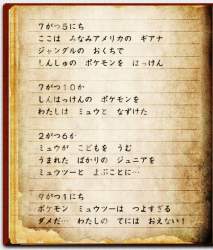 7がつ5にち
ここは みなみアメリカの ギアナ
ジャングルの おくちで
しんしゅの ポケモンを はっけん
7がつ10か
しんはっけんの ポケモンを
わたしは ミュウと なずけた
2がつ6か
ミュウが こどもを うむ
うまれた ばかりの ジュニアを
ミュウツーと よぶことに…
9がつ1にち
ポケモン ミュウツーは つよすぎる
ダメだ… わたしの てには おえない!